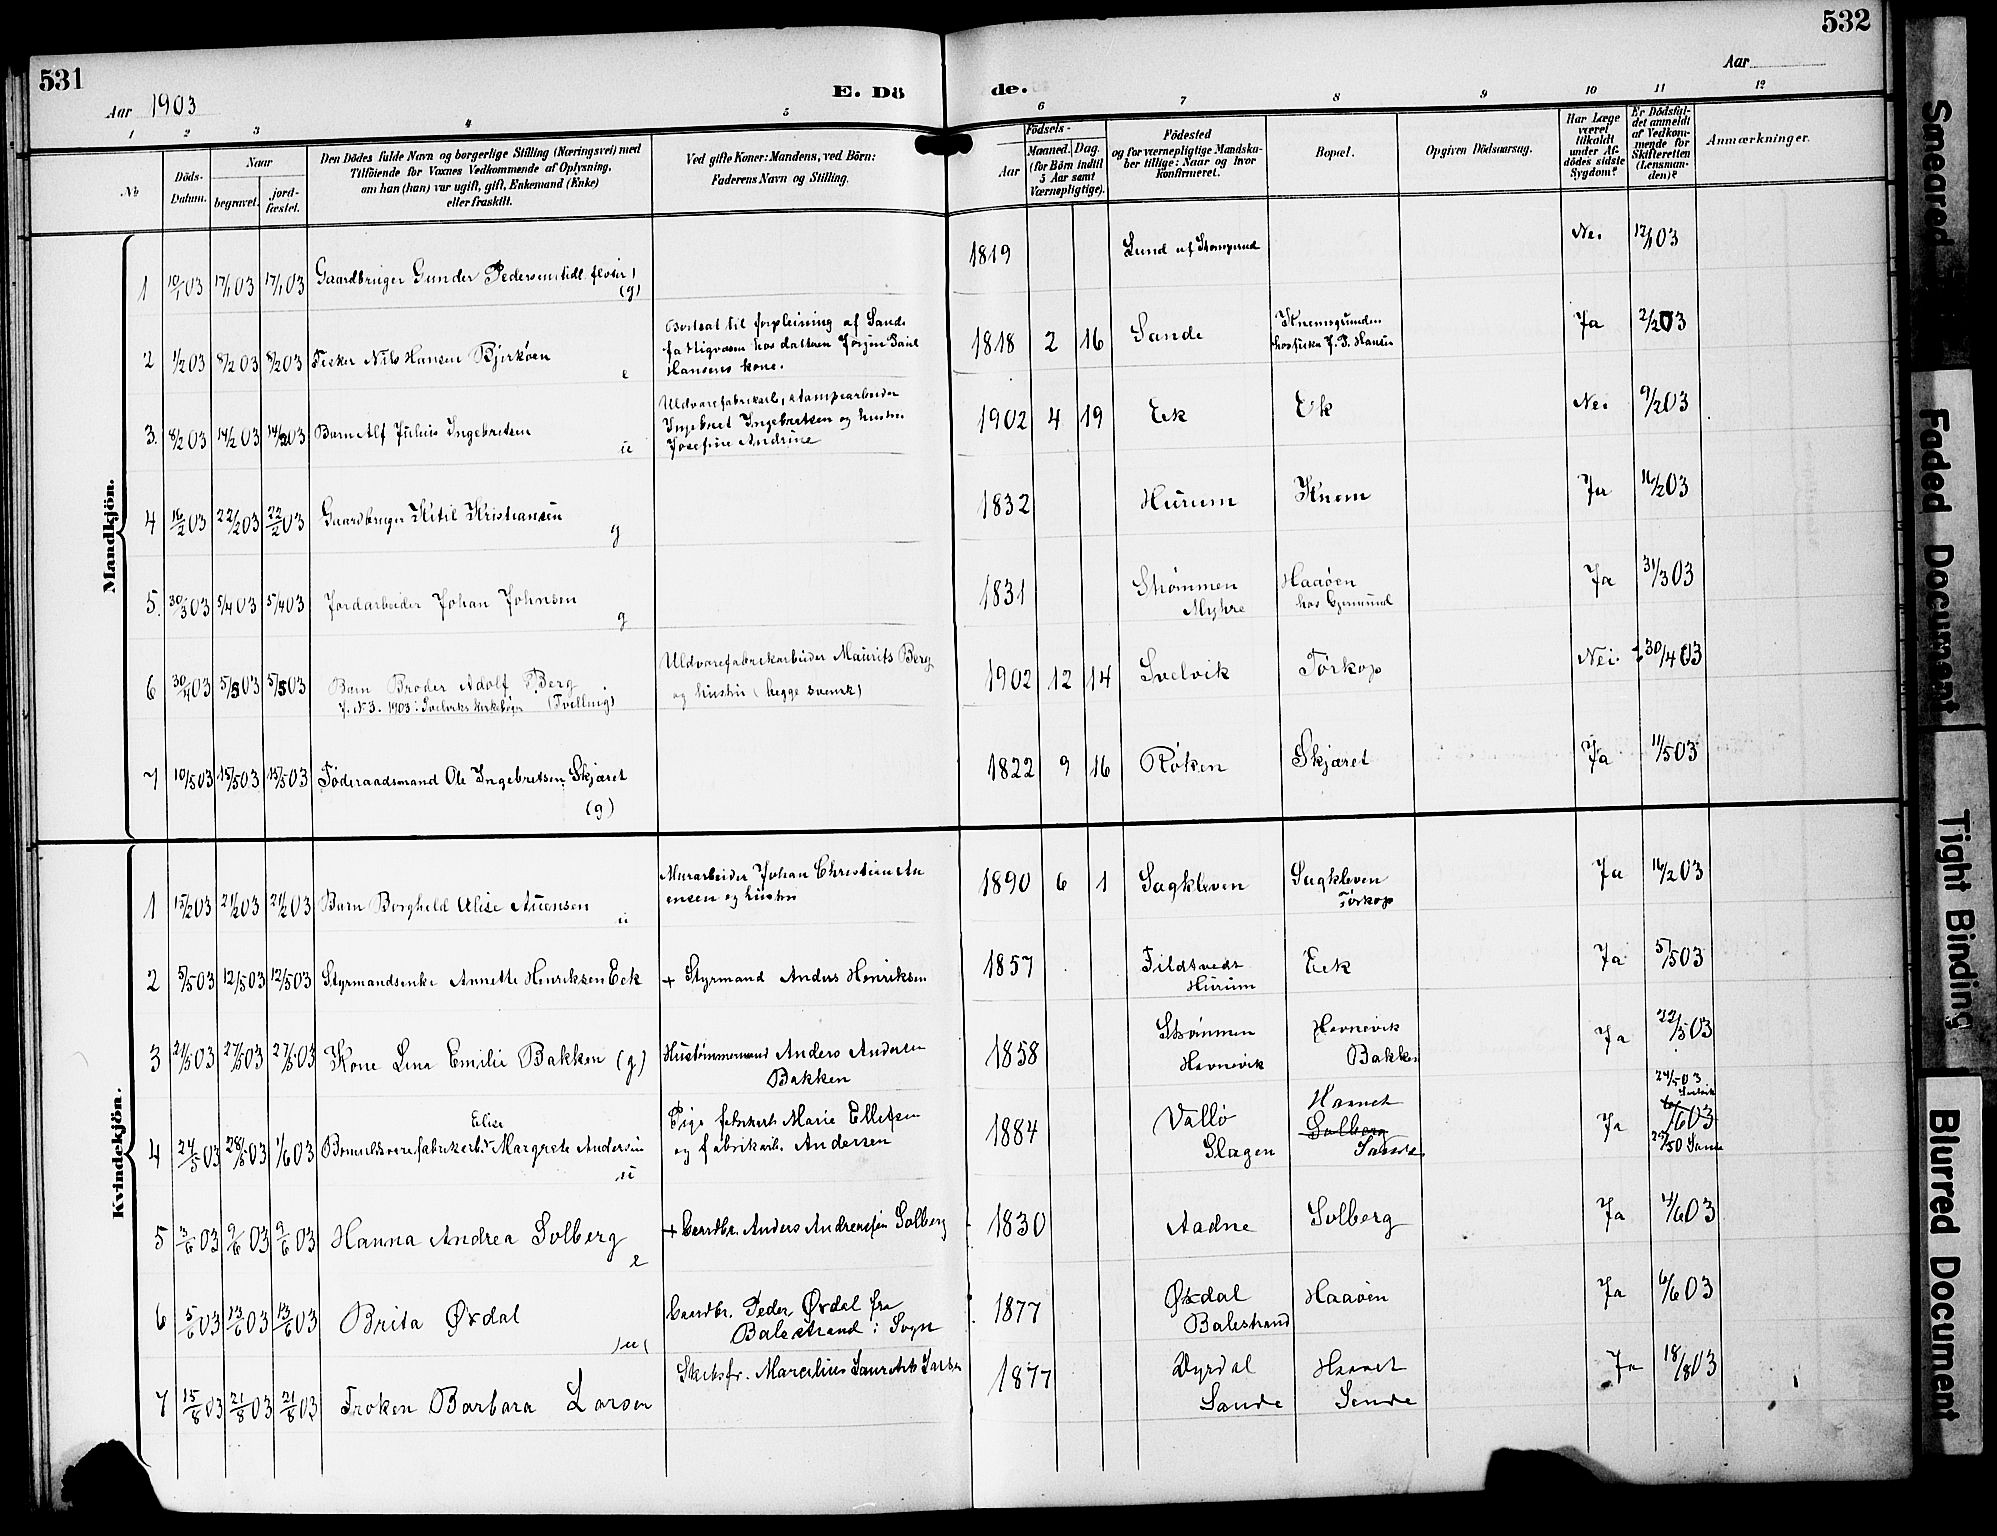 531
532
Aar 1903
E. Dö
de.
Aar
1 2 3 4 5 6 7 8 9 10 11 12
No
Döds-Datum.
Naar
begravet.
jord-fæstet.
Den Dödes fulde Navn og borgerlige Stilling (Næringsvei) med
Tilföiende for Voxnes Vedkommende af Oplysning,
om han (hun) var ugift, gift, Enkemand (Enke)
eller fraskilt.
Ved gifte Koner: Mandens, ved Börn:
Faderens Navn og Stilling.
Födsels-
Aar
Maaned. Dag.
(for Börn indtil
5 Aar samt
Værnepligtige).
Födested
og for værnepligtige Mandska-
ber tillige: Naar og hvor
Konfirmeret.
Bopæl.
Opgiven Dödsaarsag.
Har Læge
været
tilkaldt
under Af-
dödes sidste
Sygdom?
Er Dödsfal-
det anmeldt
af Vedkom-
mende for
Skifteretten
(Lensman-
den)?
Anmærkninger.
Mandkjön.
1 10/1 03 17/1 03 17/1 03 Gaardbruger Gunder Pedersen (g) 1819 Lund Nei 12/1 03
2 1/2 03 8/2 03 8/2 03 Fisker Nils Hansen Bjerköen e
Bortsat til forpleining af Sande
fattigvæsen hos datteren
Hansens kone.
1818 2 16 Sande
hos fisker J. P. Hansen
Ja 2/2 03
3. 8/2 03 14/2 03 14/2 03 Barn Alf Julius Ingebretsen u
Uldvarefabrikarb., stampearbeider
Ingebret Ingebretsen og hustru
Josefine Andrine
1902 4 19 Eek Ek Nei 9/2 03
4 16/2 03 22/2 03 22/2 03 Gaardbruger Kitil Kristiansen g 1832 Hurum Knem Ja 16/2 03
5. 30/3 03 5/4 03 5/4 03 Jordarbeider Johan Johnsen g 1831 Strømmen
Myhre
Haaöen
hos
Ja 31/3 03
6 30/4 03 5/5 03 5/5 03 Barn Broder Adolf Berg
f. N 3. 1903 i Svelviks kirkebog (Tvilling)
Uldvarefabrikarbeider Maurits Berg
og hustru (begge svensk)
1902 12 14 Svelvik Tørkop Nei 30/4 03
7 10/5 03 15/5 03 15/5 03 Föderaadsmand Ole Ingebretsen Skjæret
(g)
1822 9 16 Röken Skjæret Ja 11/5 03
Kvindekjön.
1 15/2 03 21/2 03 21/2 03 Barn Borghild Alise Auensen u
Murarbeider Johan Christian Au
ensen og hustru
1890 6 1 Sagkleven Sagkleven
Tørkop
Ja 16/2 03
2 5/5 03 12/5 03 12/5 03 Styrmandsenke Annette Henriksen Eek
+ Styrmand Anders Henriksen
1857 Tildtvedt
Hurum
Eek Ja 5/5 03
3 21/5 03 27/5 03 27/5 03 Kone Lina Emilie Bakken (g)
Hustömmermand Anders Andersen
Bakken
1858 Strömmen
Havnevik
Havnevik
Bakken
Ja 22/5 03
4 24/5 03 28/5 03 1/6 03 Elise
Bomuldsvarefabrikarb. Margrete Andersen
u
Pige fabrikarb. Marie Ellefsen
og fabrikarb. Andersen
1884 Vallö
Slagen
Havnet
Solberg
Sande
Ja 24/5 03
Svelvik
1/6 03
5 3/6 03 9/6 03 9/6 03 Hanna Andrea Solberg
e
+ Gaardbr. Anders Andreassen Solberg
1830 Aadne Solberg Ja 4/6 03
6 5/6 03 13/6 03 13/6 03 Brita Øxdal
(u)
Gaardbr. Peder Øxdal fra
Balestrand i Sogn
1877 Øxdal
Balestrand
Haaöen Ja 6/6 03
7 15/8 03 21/8 03 21/8 03 Fröken Barbara Larsen
Skibsfr. Marcelius Laurits Larsen
1877 Dyrdal
Sande
Havnet
Sande
Ja 18/8 03
Smeared
Faded Document
Tight Binding
Blurred Document